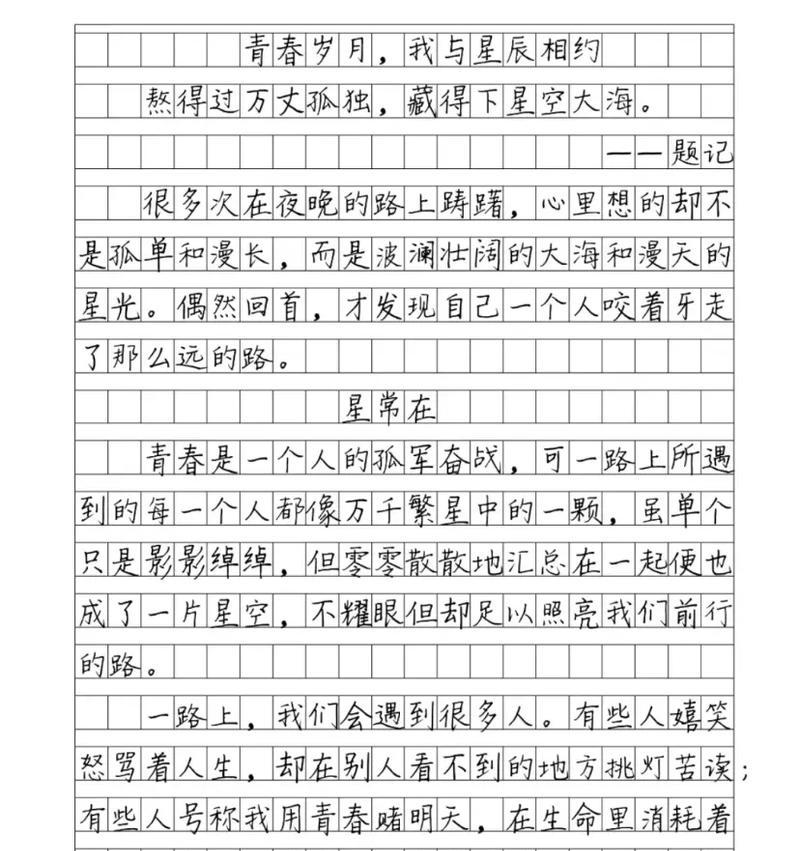 青春岁月，我与星辰相约
熬得过万丈孤独，藏得下星空大海。
——题记
很多次在夜晚的路上踌躇，心里想的却不
是孤单和漫长，而是波澜壮阔的大海和漫天的
星光。偶然回首，才发现自己一个人咬着牙走
了那么远的路。
星常在
青春是一个人的孤军奋战，可一路上所遇
到的每一个人都像万千繁星中的一颗，虽单个
只是影影绰绰，但零零散散地汇总在一起便也
成了一片星空，不耀眼但却足以照亮我们前行
的路。
一路上，我们会遇到很多人。有些人嬉笑
怒骂着人生，却在别人看不到的地方挑灯苦读；
有些人号称我用青春赌明天，在生命里消耗着